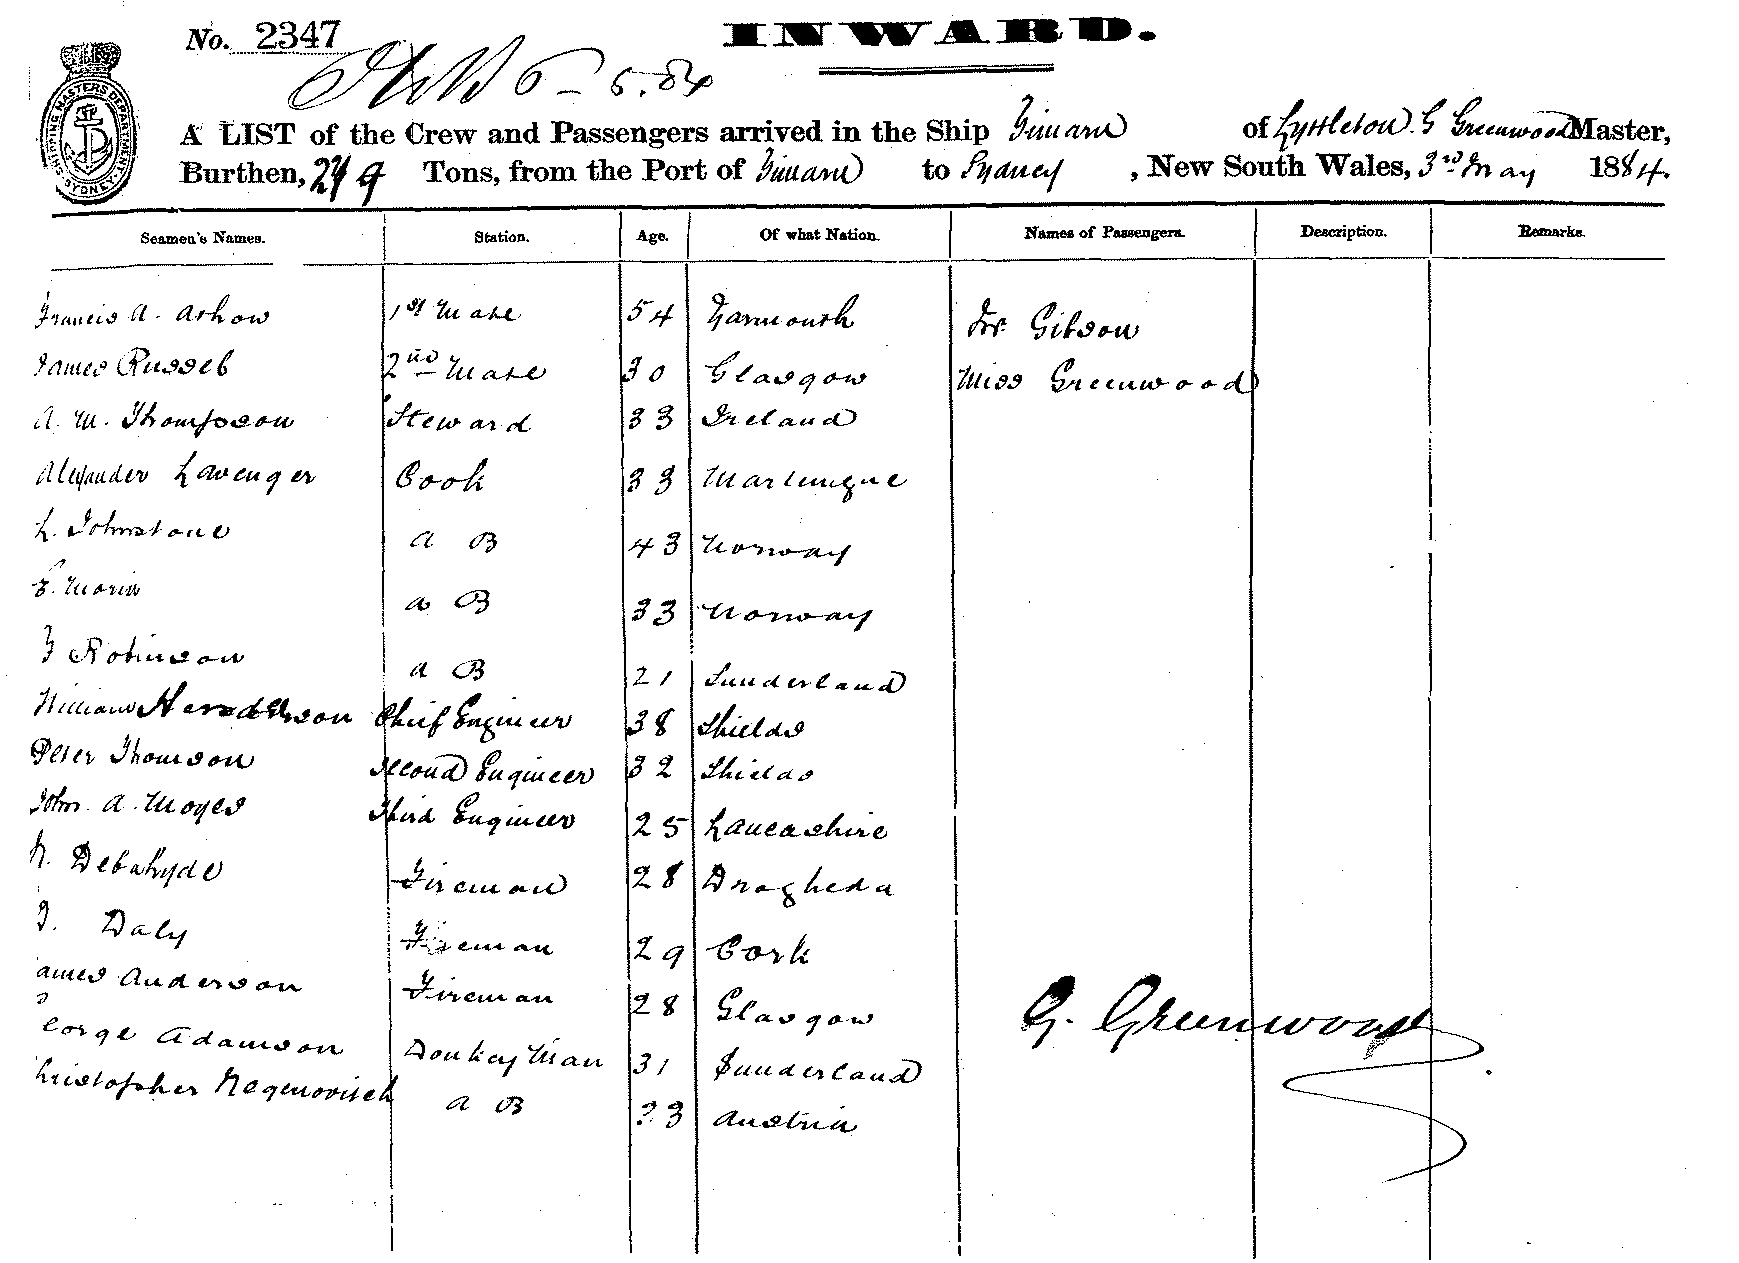 No. 2347
INWARD.
6-5.84
SHIPPING MASTERS DEPARTMENT SYDNEY
A LIST of the Crew and Passengers arrived in the Ship Timaru of Lyttleton. G Greenwood Master,
Burthen, Tons, from the Port of Timaru to Sydney, New South Wales, 3rd May 1884.
Seamen's Names. Station. Age. Of what Nation. Names of Passengers. Description. Remarks.
Francis A. Ashow 1st Mate 54 Yarmouth Gibson
James Russell 2nd Mate 30 Glasgow Miss Greenwood
A. M. Thompson Steward 33 Ireland
Alexander Lavenger Cook 33 Martinique
L. Johnstone A B 43 Norway
Morin A B 33 Norway
Robinson A B 21 Sunderland
William Henderson Chief Engineer 38 Shields
Peter Thomson Second Engineer 32 Shields
John. A. Moyes Third Engineer 25 Lancashire
Fireman 28 Drogheda
Daly Fireman 29 Cork
James Anderson Fireman 28 Glasgow
George Adamson Donkey Man 31 Sunderland
Christopher A B Austria
G. Greenwood